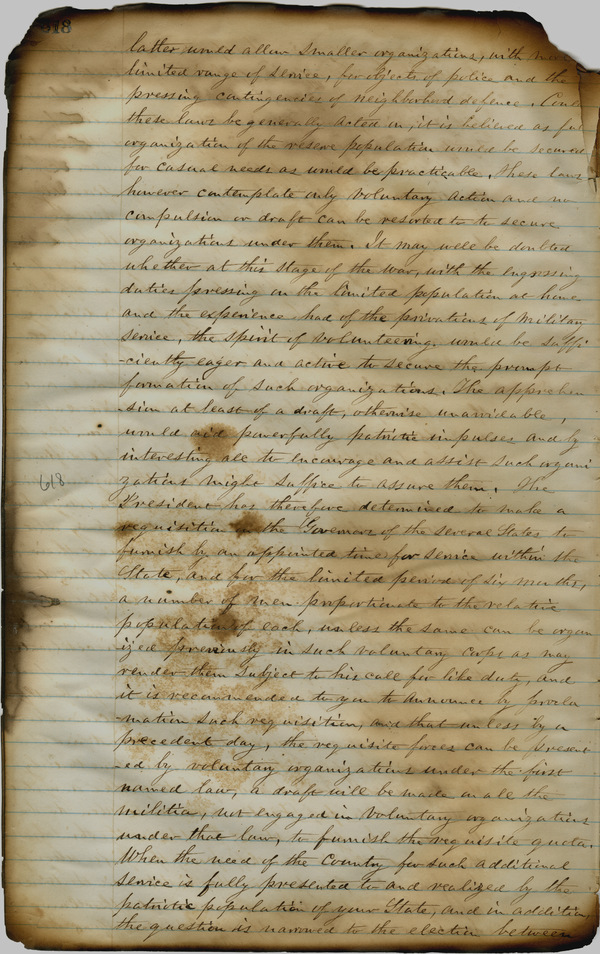 618
latter would allow smaller organizations, with more
limited range of service, for objects of police and the
pressing contingencies of neighborhood defence. Could
these laws be generally acted on, it is believed as full
organization of the reserve population would be secured
for casual needs as would be practicable. These laws
however contemplate only voluntary action and no
compulsion or draft can be resorted to to secure
organizations under them. It may well be doubted
whether at this stage of the war, with the engrossing
duties pressing on the limited population at home
and the experience had of the privations of military
service, the spirit of volunteering, would be suffi
-ciently eager and active to secure the prompt
formation of such organizations. The apprehen
-sion at least of a draft, otherwise unavoidable,
would aid powerfully patriotic impulses and by
interesting all to encourage and assist such organi
618
zations might suffice to assure them. The
President has therefore determined to make a
requisition on the Governors of the several States to
furnish by an appointed time for service within the
State, and for the limited period of six months,
a number of men proportionate to the relative
population of each, unless the same can be organ
ized previously in such voluntary Corps as may
render them subject to his call for like duty, and
it is recommended to you to announce by procla
-mation such requisition, and that unless by a
precedent day, the requisite forces can be present
-ed by voluntary organizations under the first
named law, a draft will be made on all the
militia, not engaged in voluntary organizations
under that law, to furnish the requisite quota.
When the need of the Country for such additional
service is fully presented to and realized by the
patriotic population of your State, and in addition
the question is narrowed to the election between